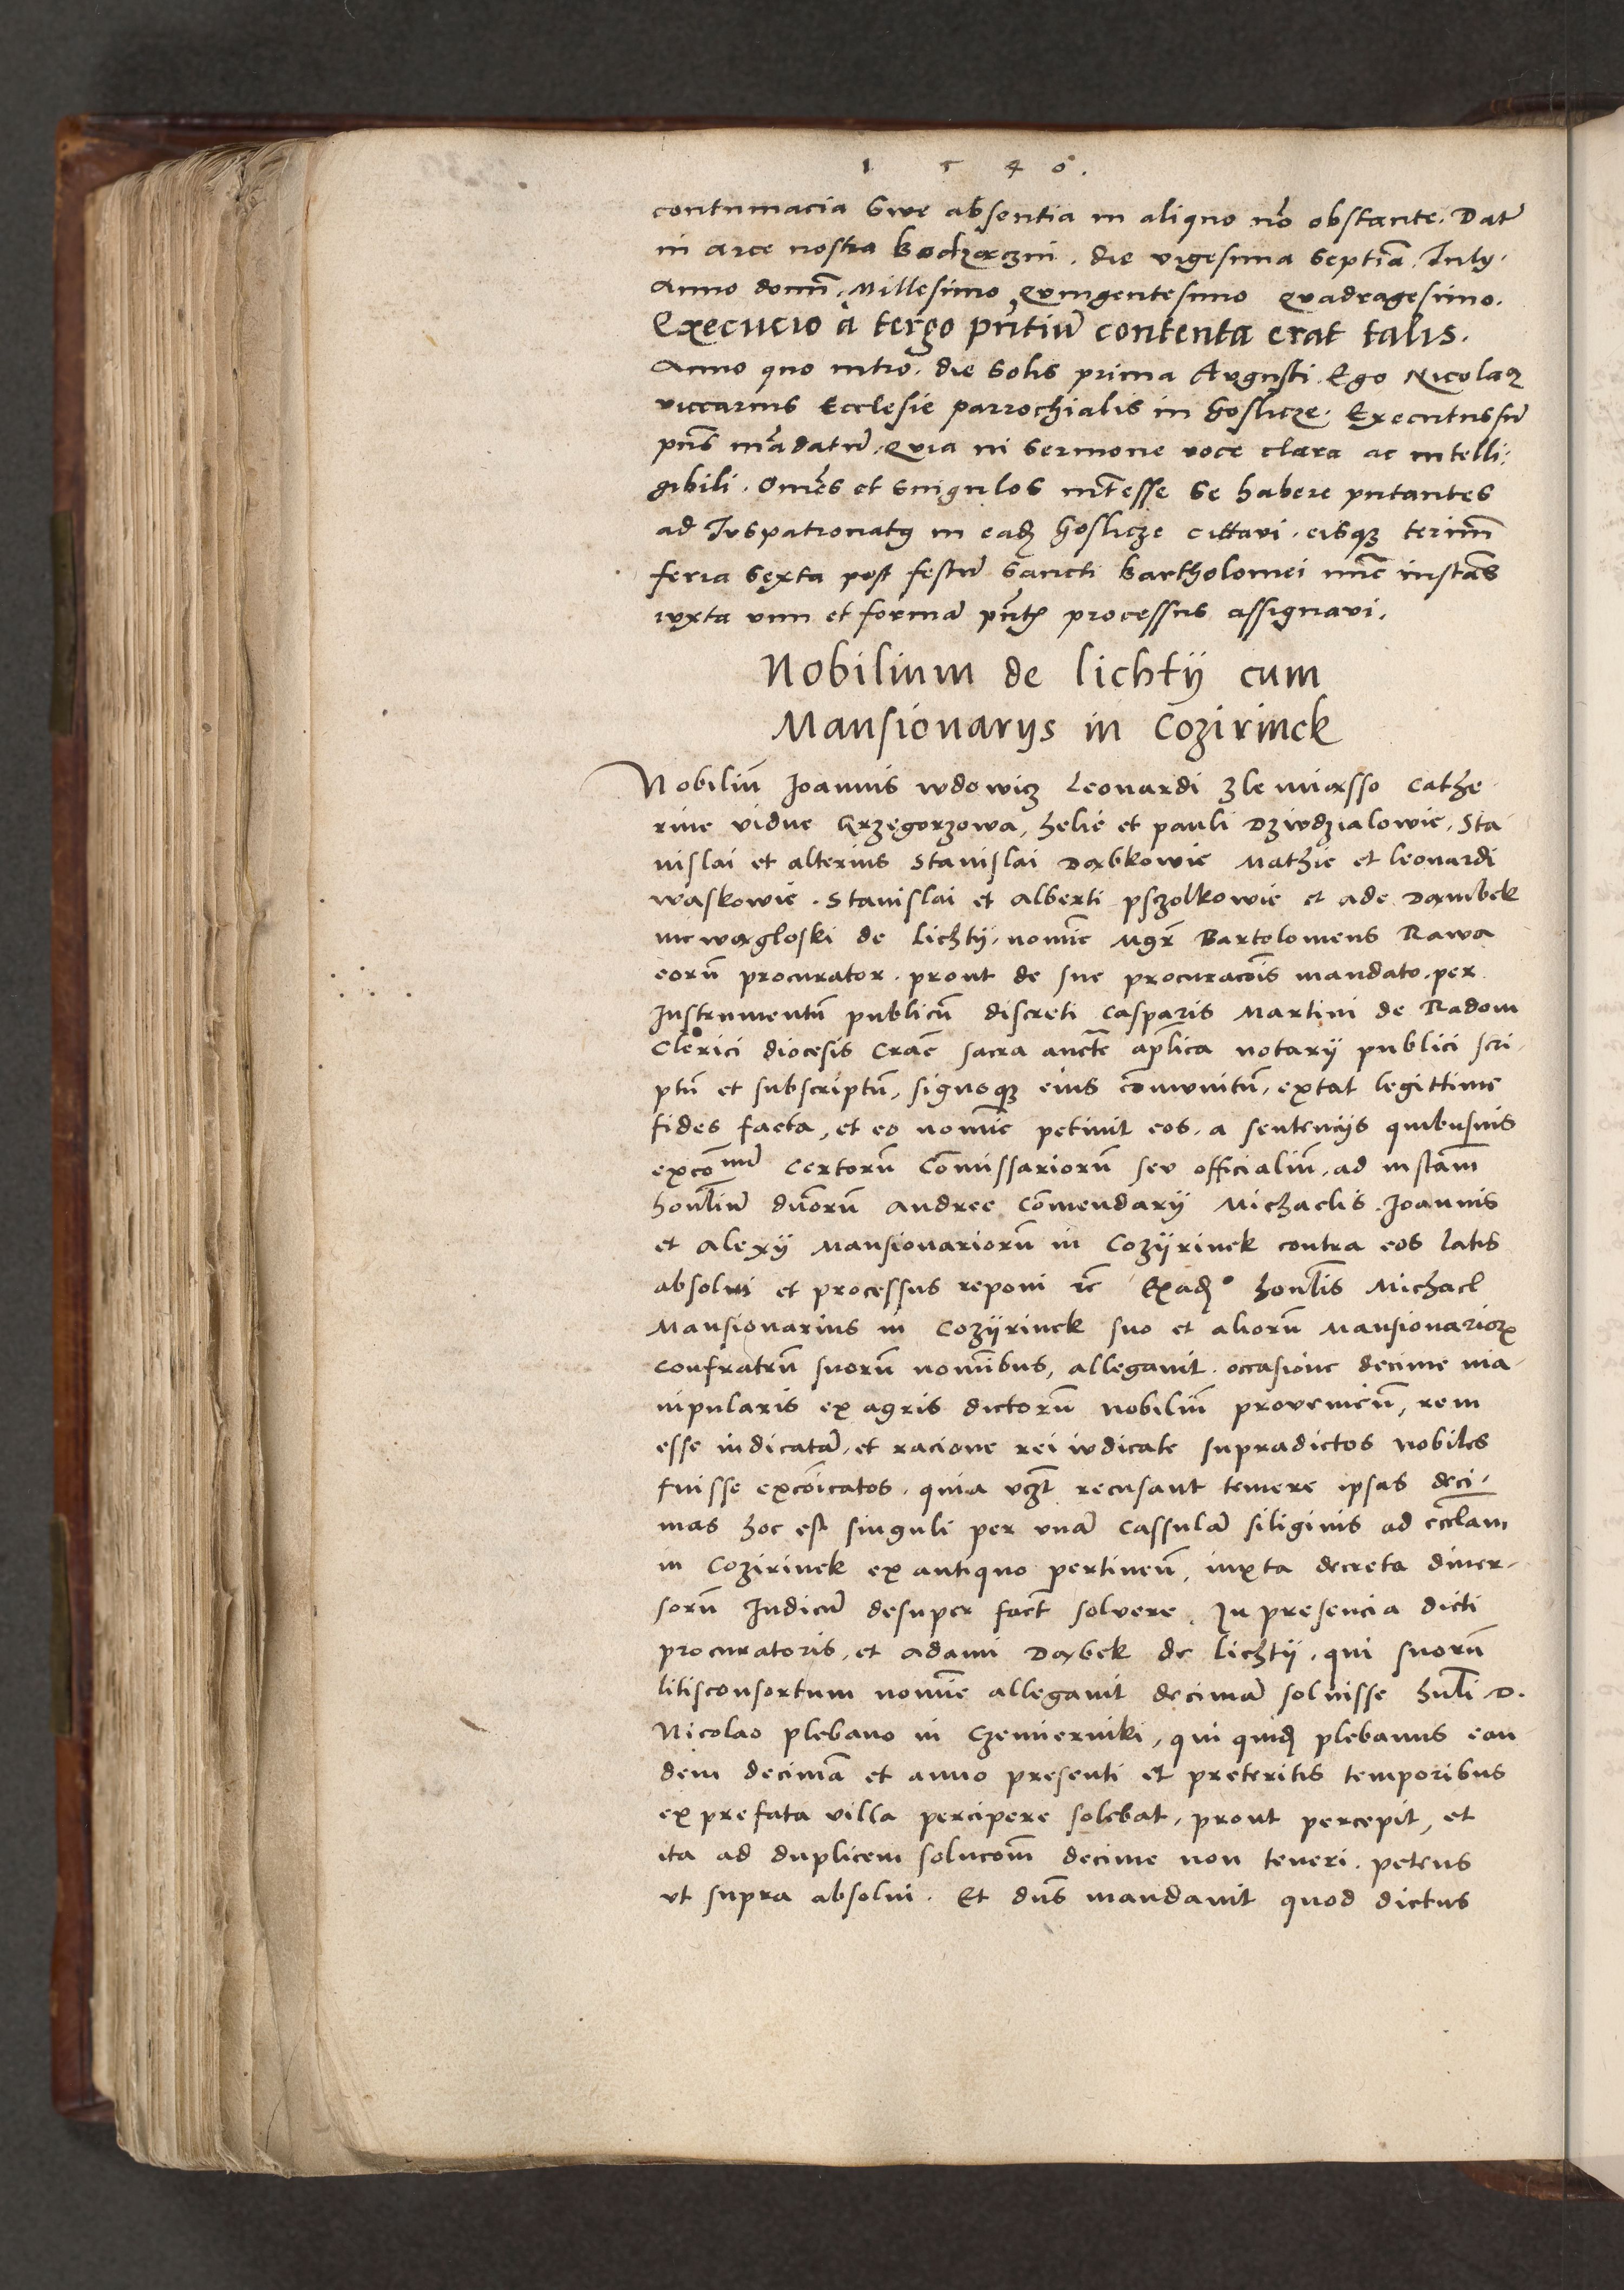 1 5 4 0.
contumacia siue absentia in aliquo nõ obstante. Datũ
in arce nostra Bodzączini. die vigesima septĩa Iuly.
Anno domñ. Millesimo Quingentesimo Quadragesimo.
Execucio à tergo pñtiũ contenta erat talis.
Anno quo intrõ. die Solis prima Augusti. Ego Nicolaꝰ
viccarius Ecclesie parrochialis in Goslicze. Executus sũ
pñs mãdatũ. Quia in sermone voce clara ac intelli:
gibili. Omẽs et singulos inťesse se habere putantes
ad Iuspatronatꝰ in eadẽ Goslicze cittaui. eisqꝫ terim̃
feria sexta post festũ Sancti Bartholomei nũc instãs
iuxta vim et formã pñtꝭ processus assignaui.
Nobilium de lichtij cum
Mansionarijs in Cozirinek
Nobiliũ Joannis wdowicz Leonardi Zlemiąsso Cathe
rine vidue Grzegorzowa, helie et pauli Dziwdzialowie, Sta
nislai et alterius Stanislai Dąbkowie Mathie et leonardi
waskowie. Stanislai et Alberti pszolkowie et ade Dambek
niewęgloski de Lichtij. nomĩe Mgr̃ Bartolomeus Rawa
eorũ procurator. prout de sue procuracõis mandato. per
Instrumentũ publicũ discreti Casparis Martini de Radom
Clerici diocesis Crac̃ sacra auctẽ aplĩca notarij publici scri
ptũ et subscriptũ, signoqꝫ eius cõmunitũ, extat legittime
fides facta, et eo nomĩe petiuit eos. a sentencijs quibusuis
excõmũ certorũ Cõmissariorũ seu officialiũ, ad instãm
honliũ dñorũ Andree Cõmendarij Michaelis. Joannis
et Alexij Mansionariorũ in Cozijrinek contra eos latis
absolui et processus reponi ꝛc̃ Exadꝰ honlis Michael
Mansionarius in Cozijrinek suo et aliorũ Mansionarioꝝ
confratrũ suorũ nomĩbus, allegauit. occasione decime ma
nipularis ex agris dictorũ nobiliũ proueniẽn, rem
esse iudicatã, et racione rei iudicate supradictos nobiles
fuisse excõicatos. quia vcz̃t recusant temere ipsas deci
mas hoc est singuli per vnã cassulã siliginis ad ecclam
in Cozirinek ex antiquo pertineñ, iuxta decreta diuer
sorũ Iudicũ desuper fact̃ soluere. In presencia dicti
procuratoris, et Adami Dąbek de lichtij, qui suorũ
litisconsortum nomĩe allegauit decimã soluisse hnli D.
Nicolao plebano in Czemierniki, qui quidẽ plebanus ean
dem decimã et anno presenti et preteritis temporibus
ex prefata villa percipere solebat, prout percepit, et
ita ad duplicem solucõm decime non teneri. petens
vt supra absolui. Et dñs mandauit quod dictus